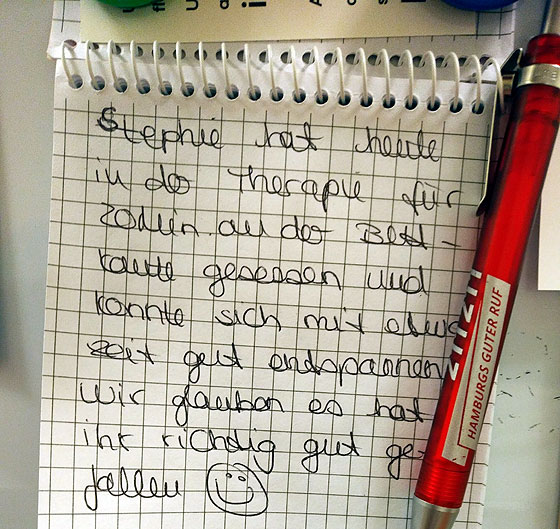 Stephie hat heute
in der Therapie für
20 Min. an der Bett-
kante gesessen und
konnte sich mit etwas
Zeit gut endspannen
Wir glauben es hat
ihr richdig gut ge-
fallen
HAMBURGS GUTER RUF